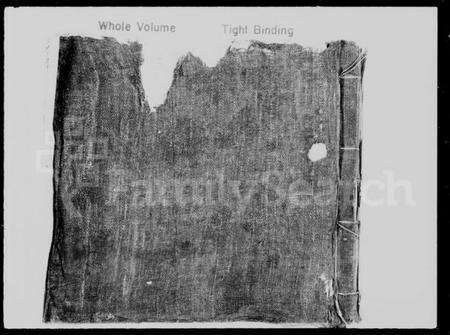 Whole Volume Tight Binding
FamilySearch